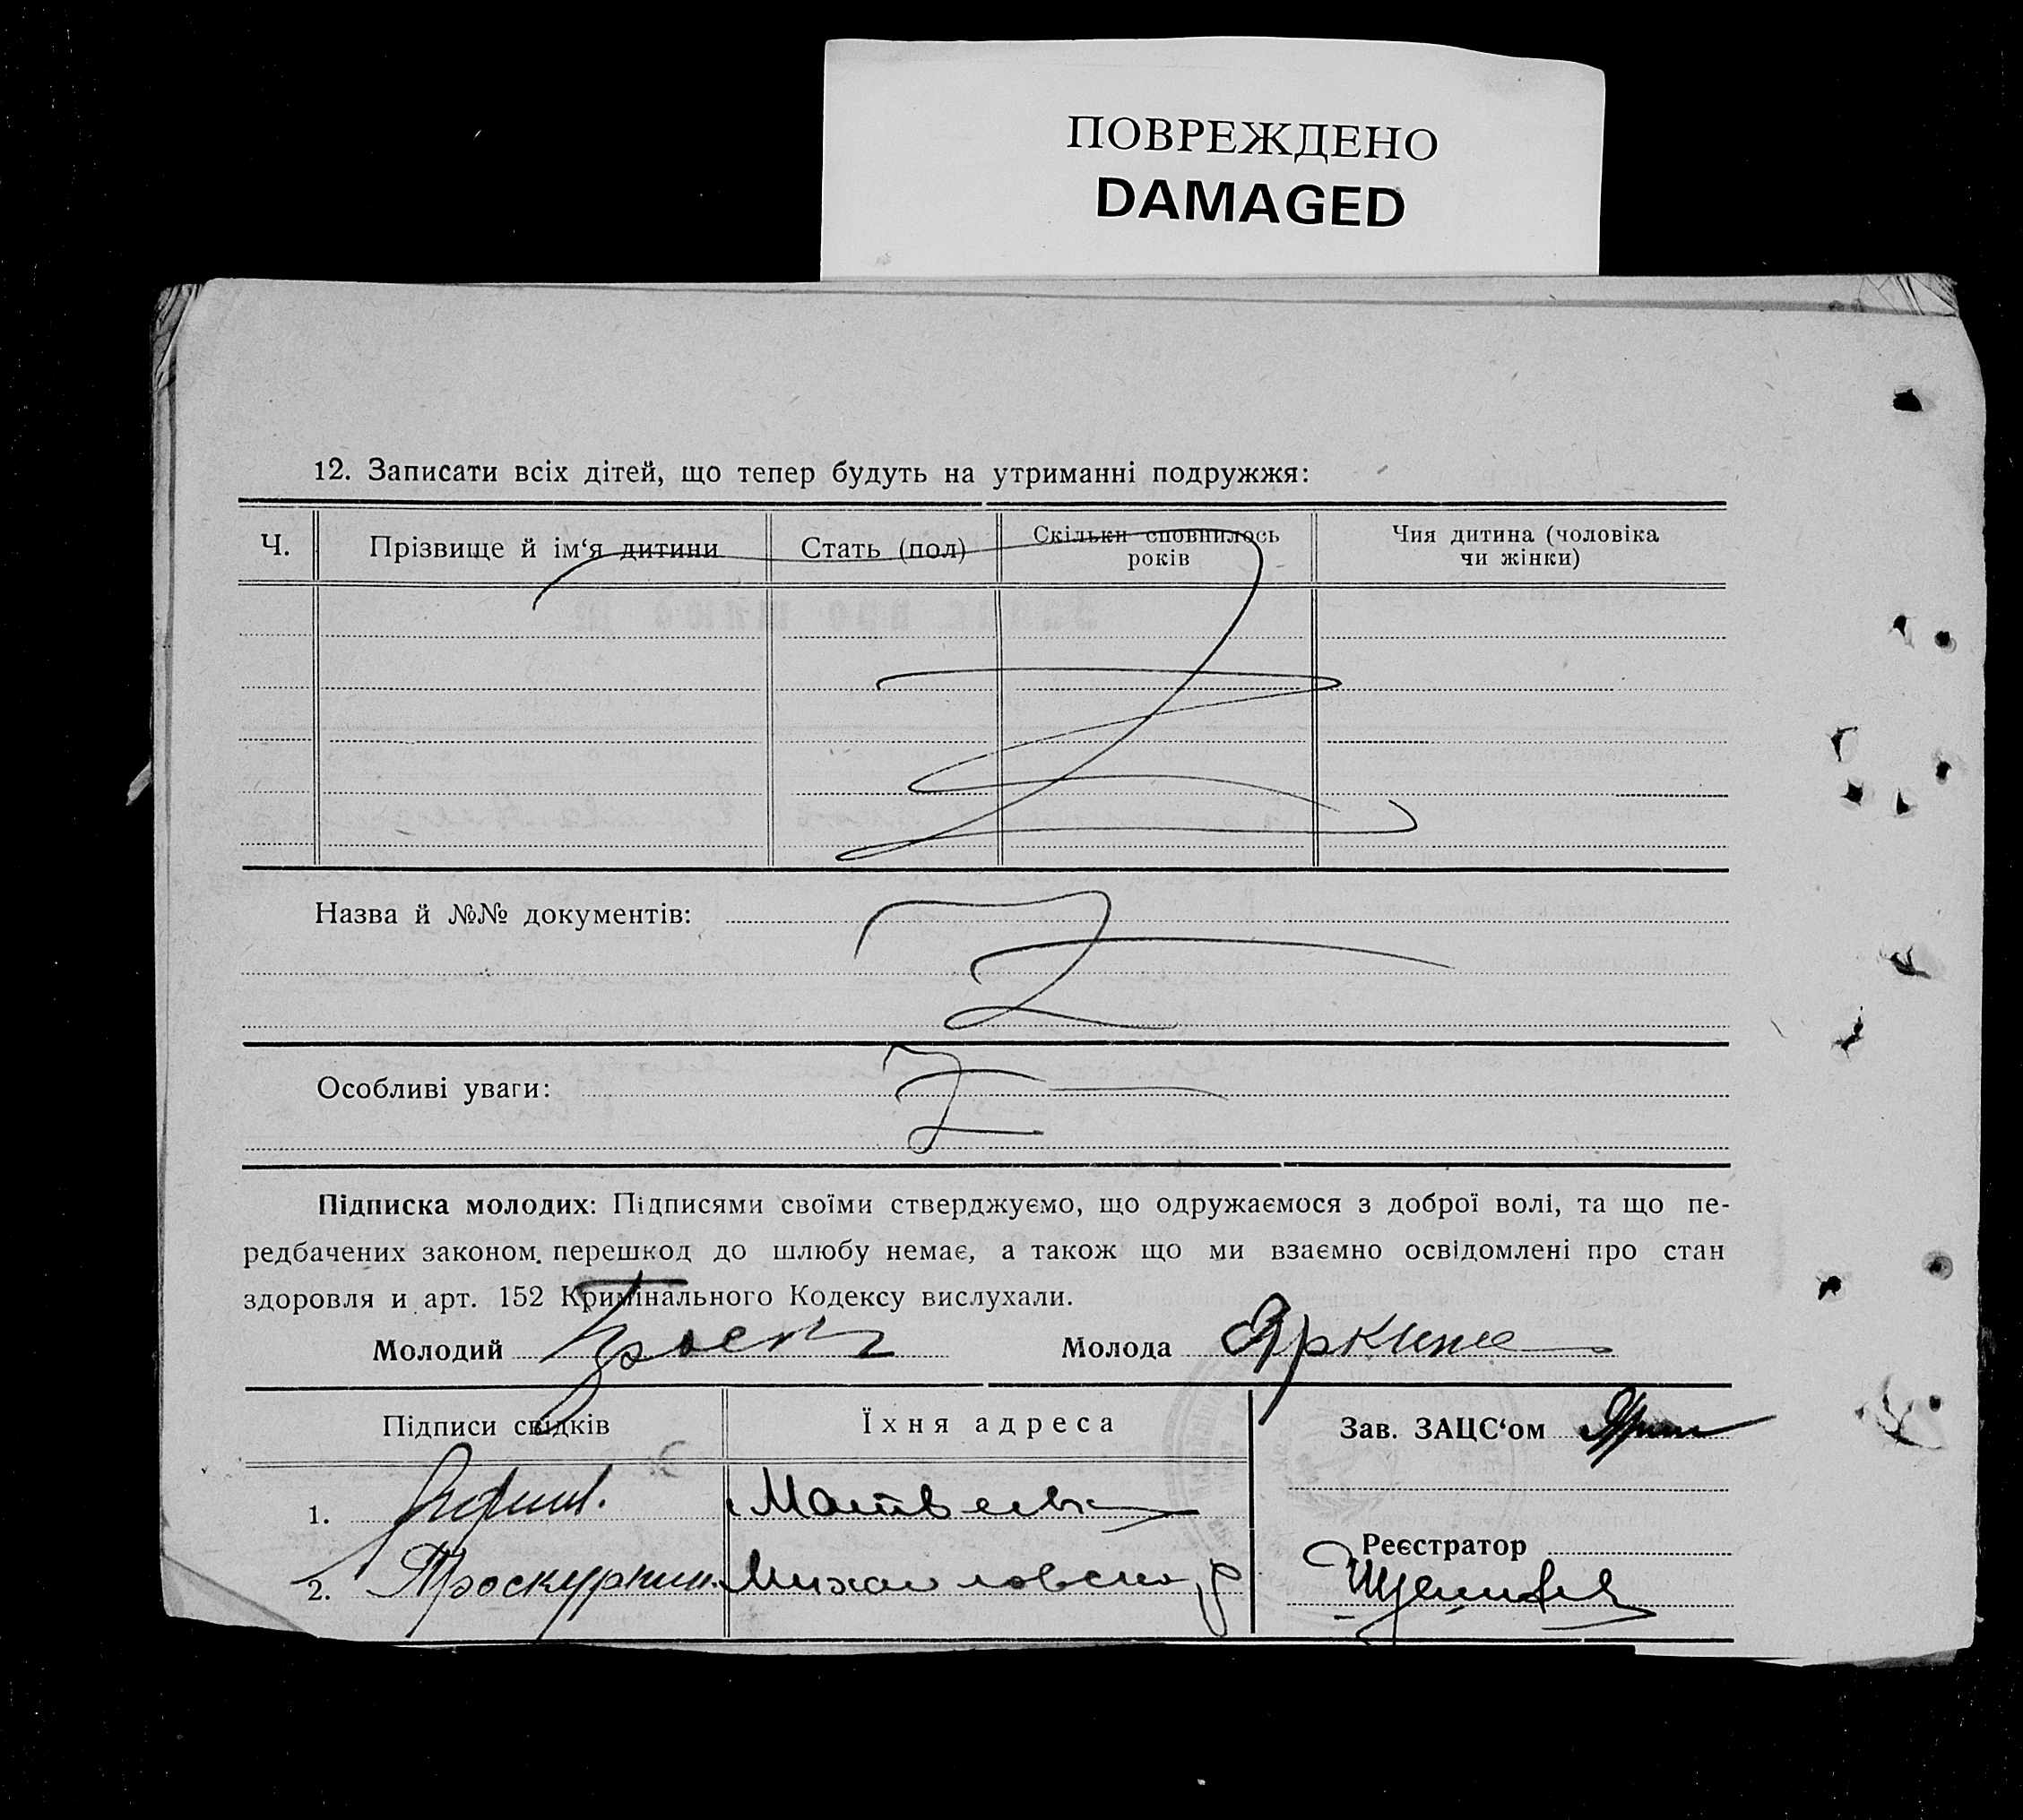 ПОВРЕЖДЕНО
DAMAGED
12. Записати всіх дітей, що тепер будуть на утриманні подружжя:
Ч. Прізвище й ім‘я дитини Стать (пол) Скільки сповнилось років Чия дитина (чоловіка чи жінки)
Назва й №№ документів:
Особливі уваги:
Підписка молодих: Підписями своїми стверджуємо, що одружаємося з доброї волі, та що пе-
редбачених законом перешкод до шлюбу немає, а також що ми взаємно освідомлені про стан
здоровля и арт. 152 Кримінального Кодексу вислухали.
Молодий Молода Яркина
Підписи свідків Їхня адреса Зав. ЗАЦС‘ом
1.
Реєстратор
2.